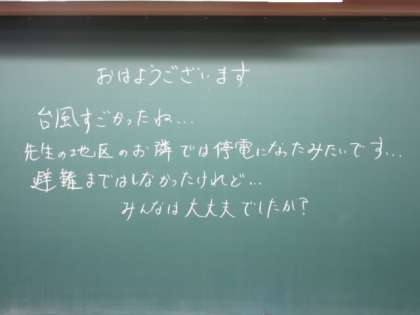 おはようございます
台風すごかったね...
先生の地区のお隣では停電になったみたいです...
避難まではしなかったけれど...
みんなは大丈夫でしたか?